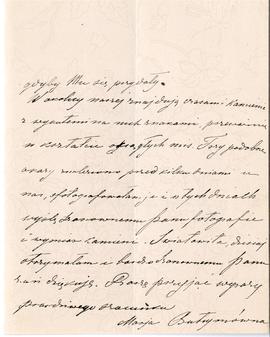 gdyby Mu się przydały.
W okolicy naszej znajdują czasami kamienie
z wykutemi na nich znakami, przeważnie
w kształcie okrągłych mis. Trzy podobne
okazy znaleziono przed kilku dniami u
nas, sfotografowałam je i w tych dniach
wyślę Szanownemu Panu fotografie
i wymiar kamieni. Światowita, dzisiaj
otrzymałam i bardzo Szanownemu Panu
zań dziękuję. Proszę przyjąć wyrazy
prawdziwego szacunku
Marja Butrymówna